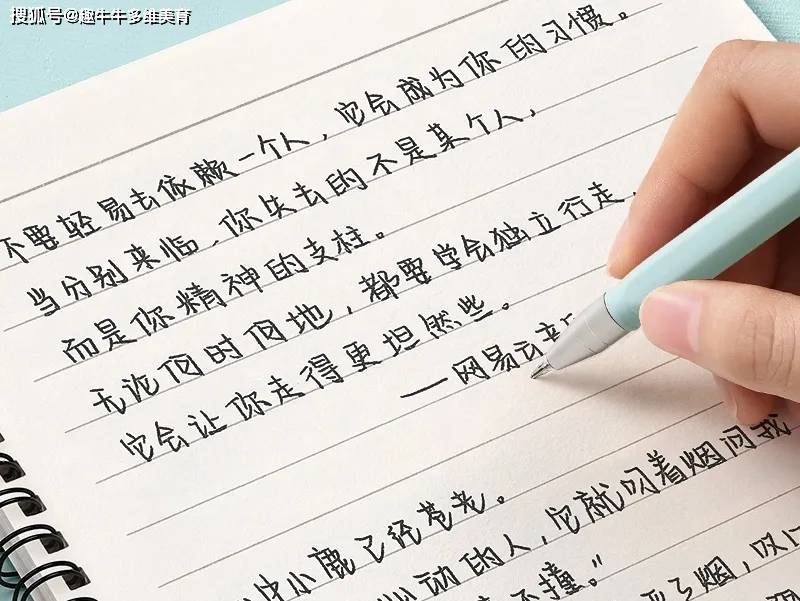 搜狐号@趣牛牛多维美育
不要轻易去依赖一个人，它会成为你的习惯。
当分别来临，你失去的不是某个人，
而是你精神的支柱。
无论何时何地，都要学会独立行走，
它会让你走得更坦然些。
—网易云音
中小鹿已经苍老。
心动的人，它就叼着烟问我
不撞。”
了烟，以